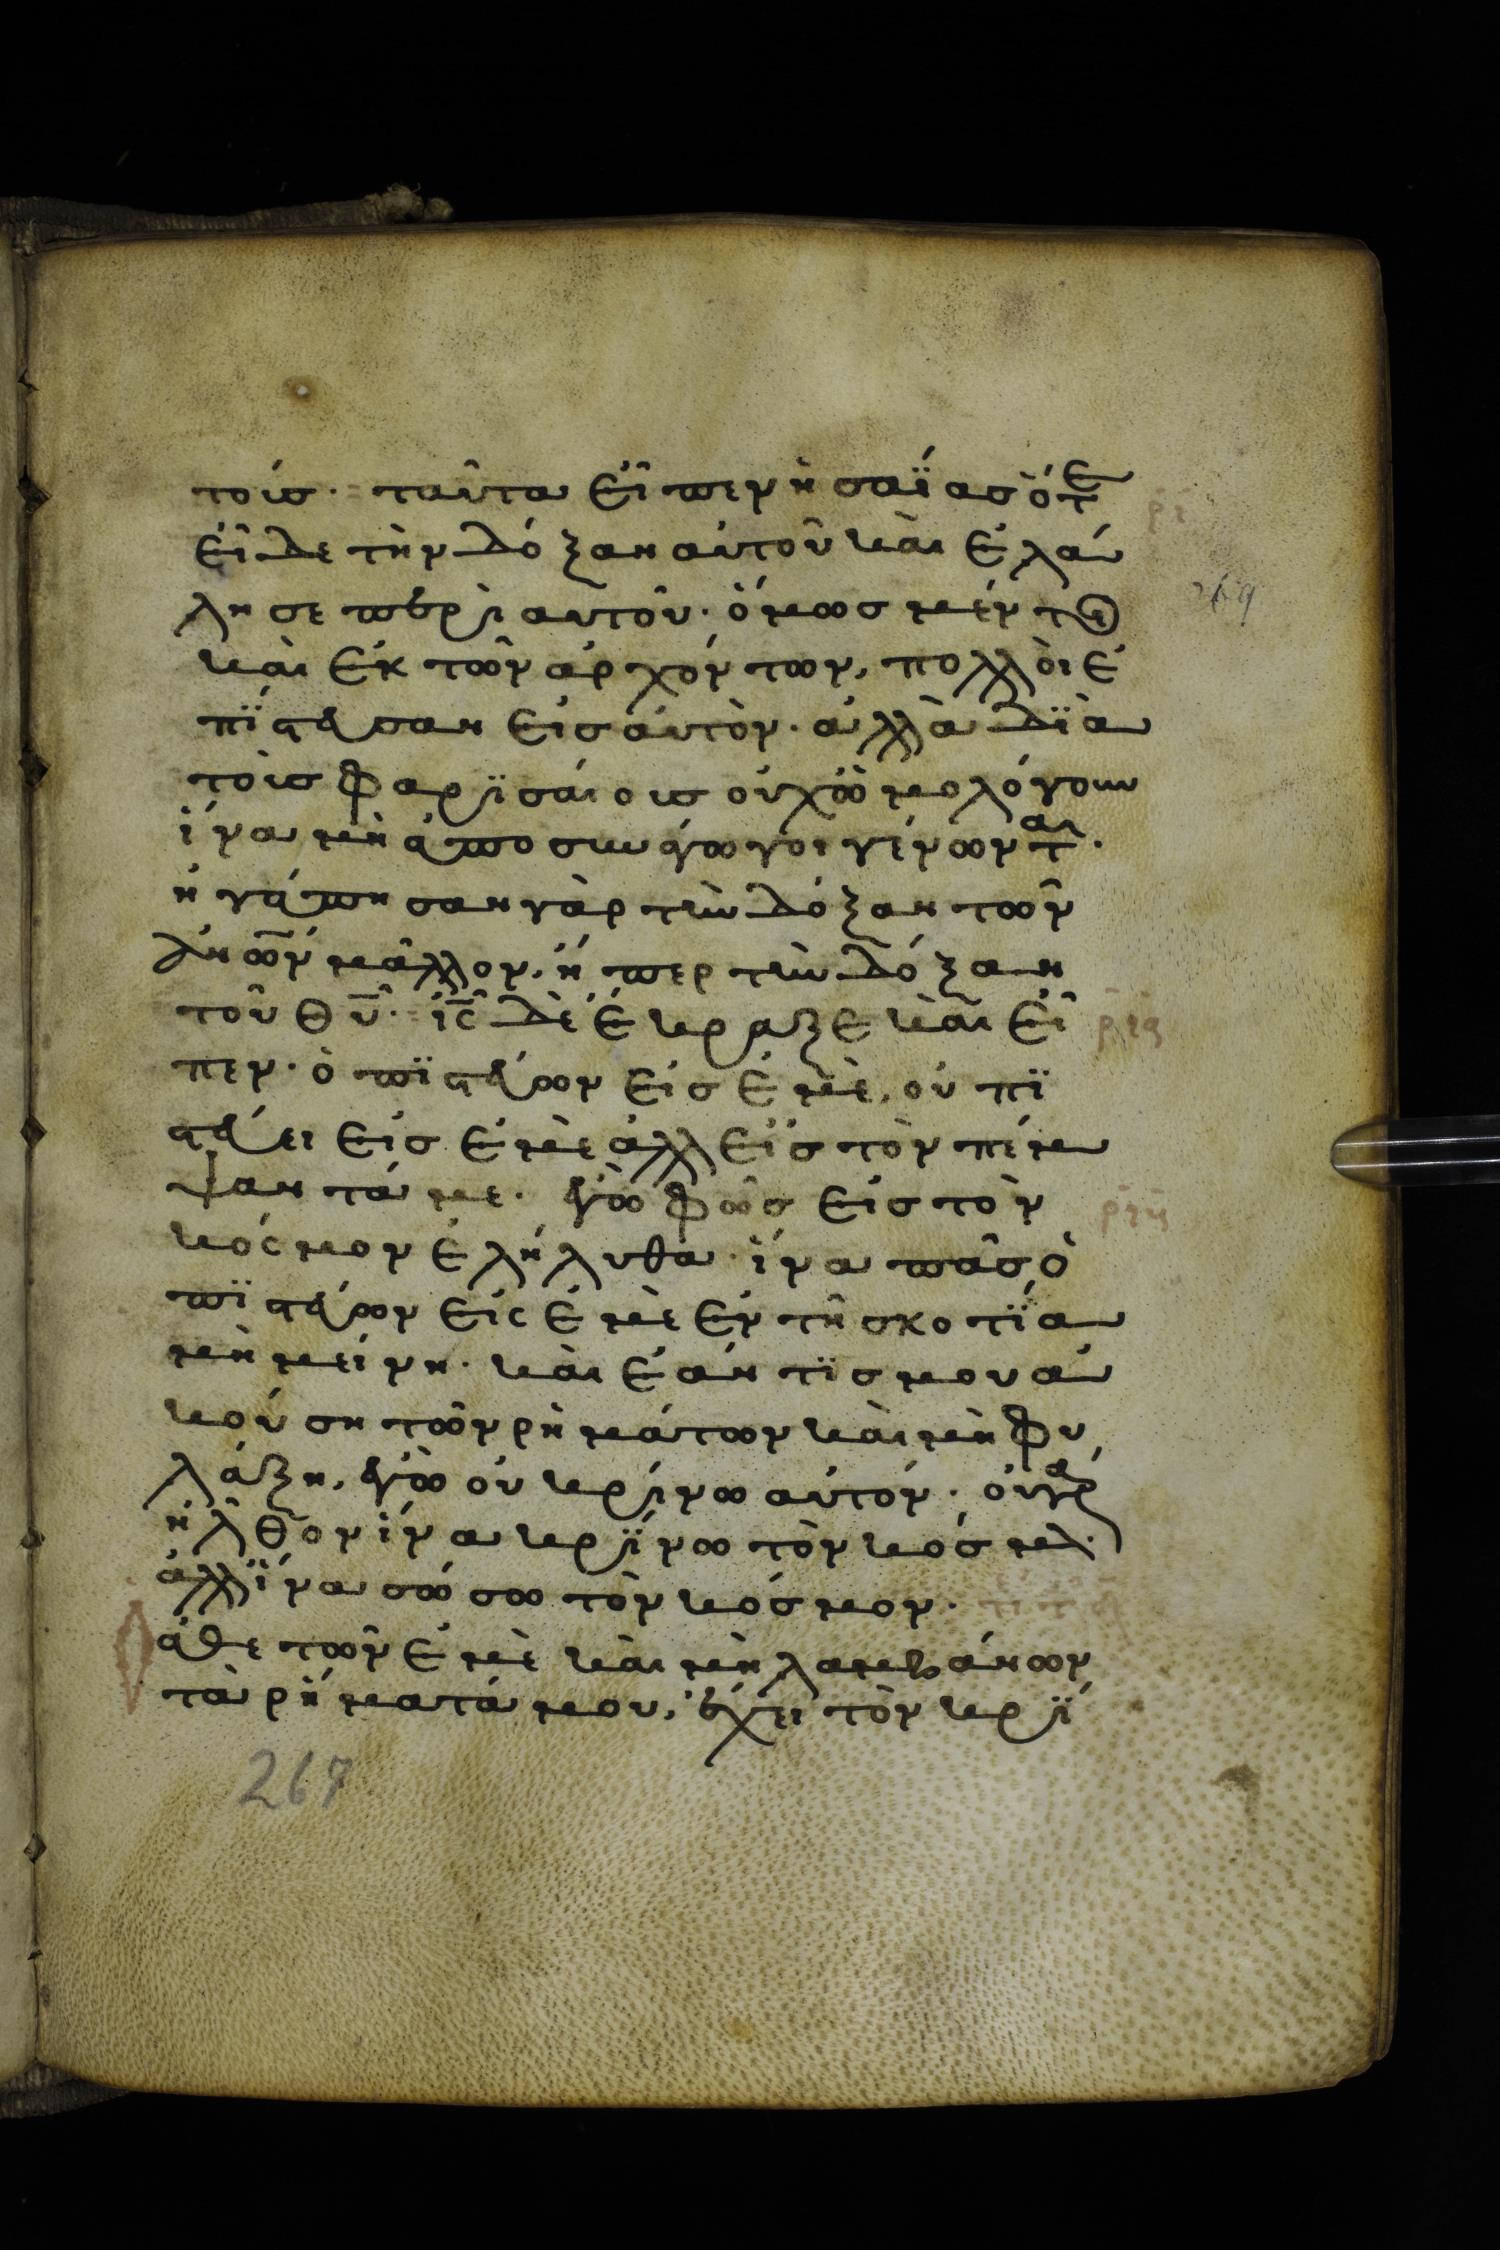 τοίσ· ταῦτα εἶπεν ἠσαΐασ ὅτε
εἶδε τὴν δόξαν αὐτοῦ καὶ ἐλά
λησε περὶ αυτοῦ· ὅμωσ μέντοι
καὶ ἐκ τῶν ἀρχόντων, πολλὸι ἐ
πΐστευσαν εἰσ αὐτὸν· ἀλλὰ δϊὰ
τοὺσ φαρϊσάιουσ οὐχ ὡμολόγουν
ἵνα μὴ ἀποσυνάγωγοι γένωνται·
ἠγάπησαν γὰρ τὴν δόξαν τῶν
ἀνῶν μᾶλλον, ἤπερ τὴν δόξαν
τοῦ θυ· ις δὲ ἔκραξε καὶ εἶ
πεν· ὁ πϊστεύων εἰσ ἐμὲ, οὐ πϊ
στεύει εἰσ ἐμὲ ἀλλ εἰσ τὸν πέμ
ψαντά με· ἐγὼ φῶσ εἰσ τὸν
κόσμον ἐλήλυθα· ἵνα πᾶσ ὁ
πϊστεύων εἰς ἐμὲ ἐν τῆ σκοτΐα
μὴ μείνη· καὶ ἐάν τϊσ μου ἀ
κούση τῶν ρημάτων καὶ μὴ φυ
λάξη, ἐγὼ οὐ κρίνω αὐτόν· οὐ γὰρ
ἦλθον ἵνα κρΐνω τὸν κόσμον·
ἀλλ ἵνα σώσω τὸν κόσμον·
ἀθετῶν ἐμὲ καὶ μὴ λαμβάνων
τὰ ρήματά μου, ἔχει τὸν κρΐ
ρι
269
ρια
267